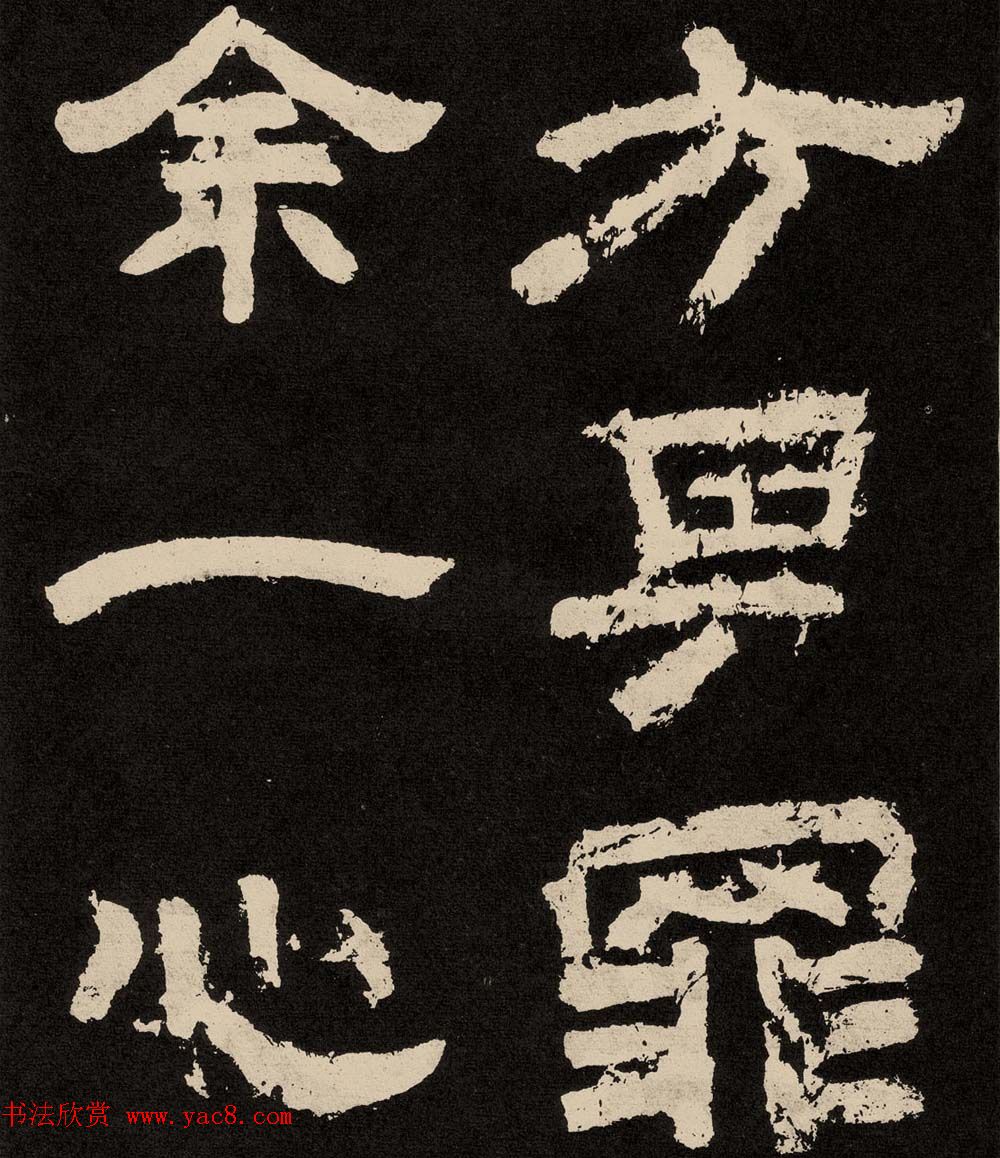 方畀罪
余一心
书法欣赏 www.yac8.com